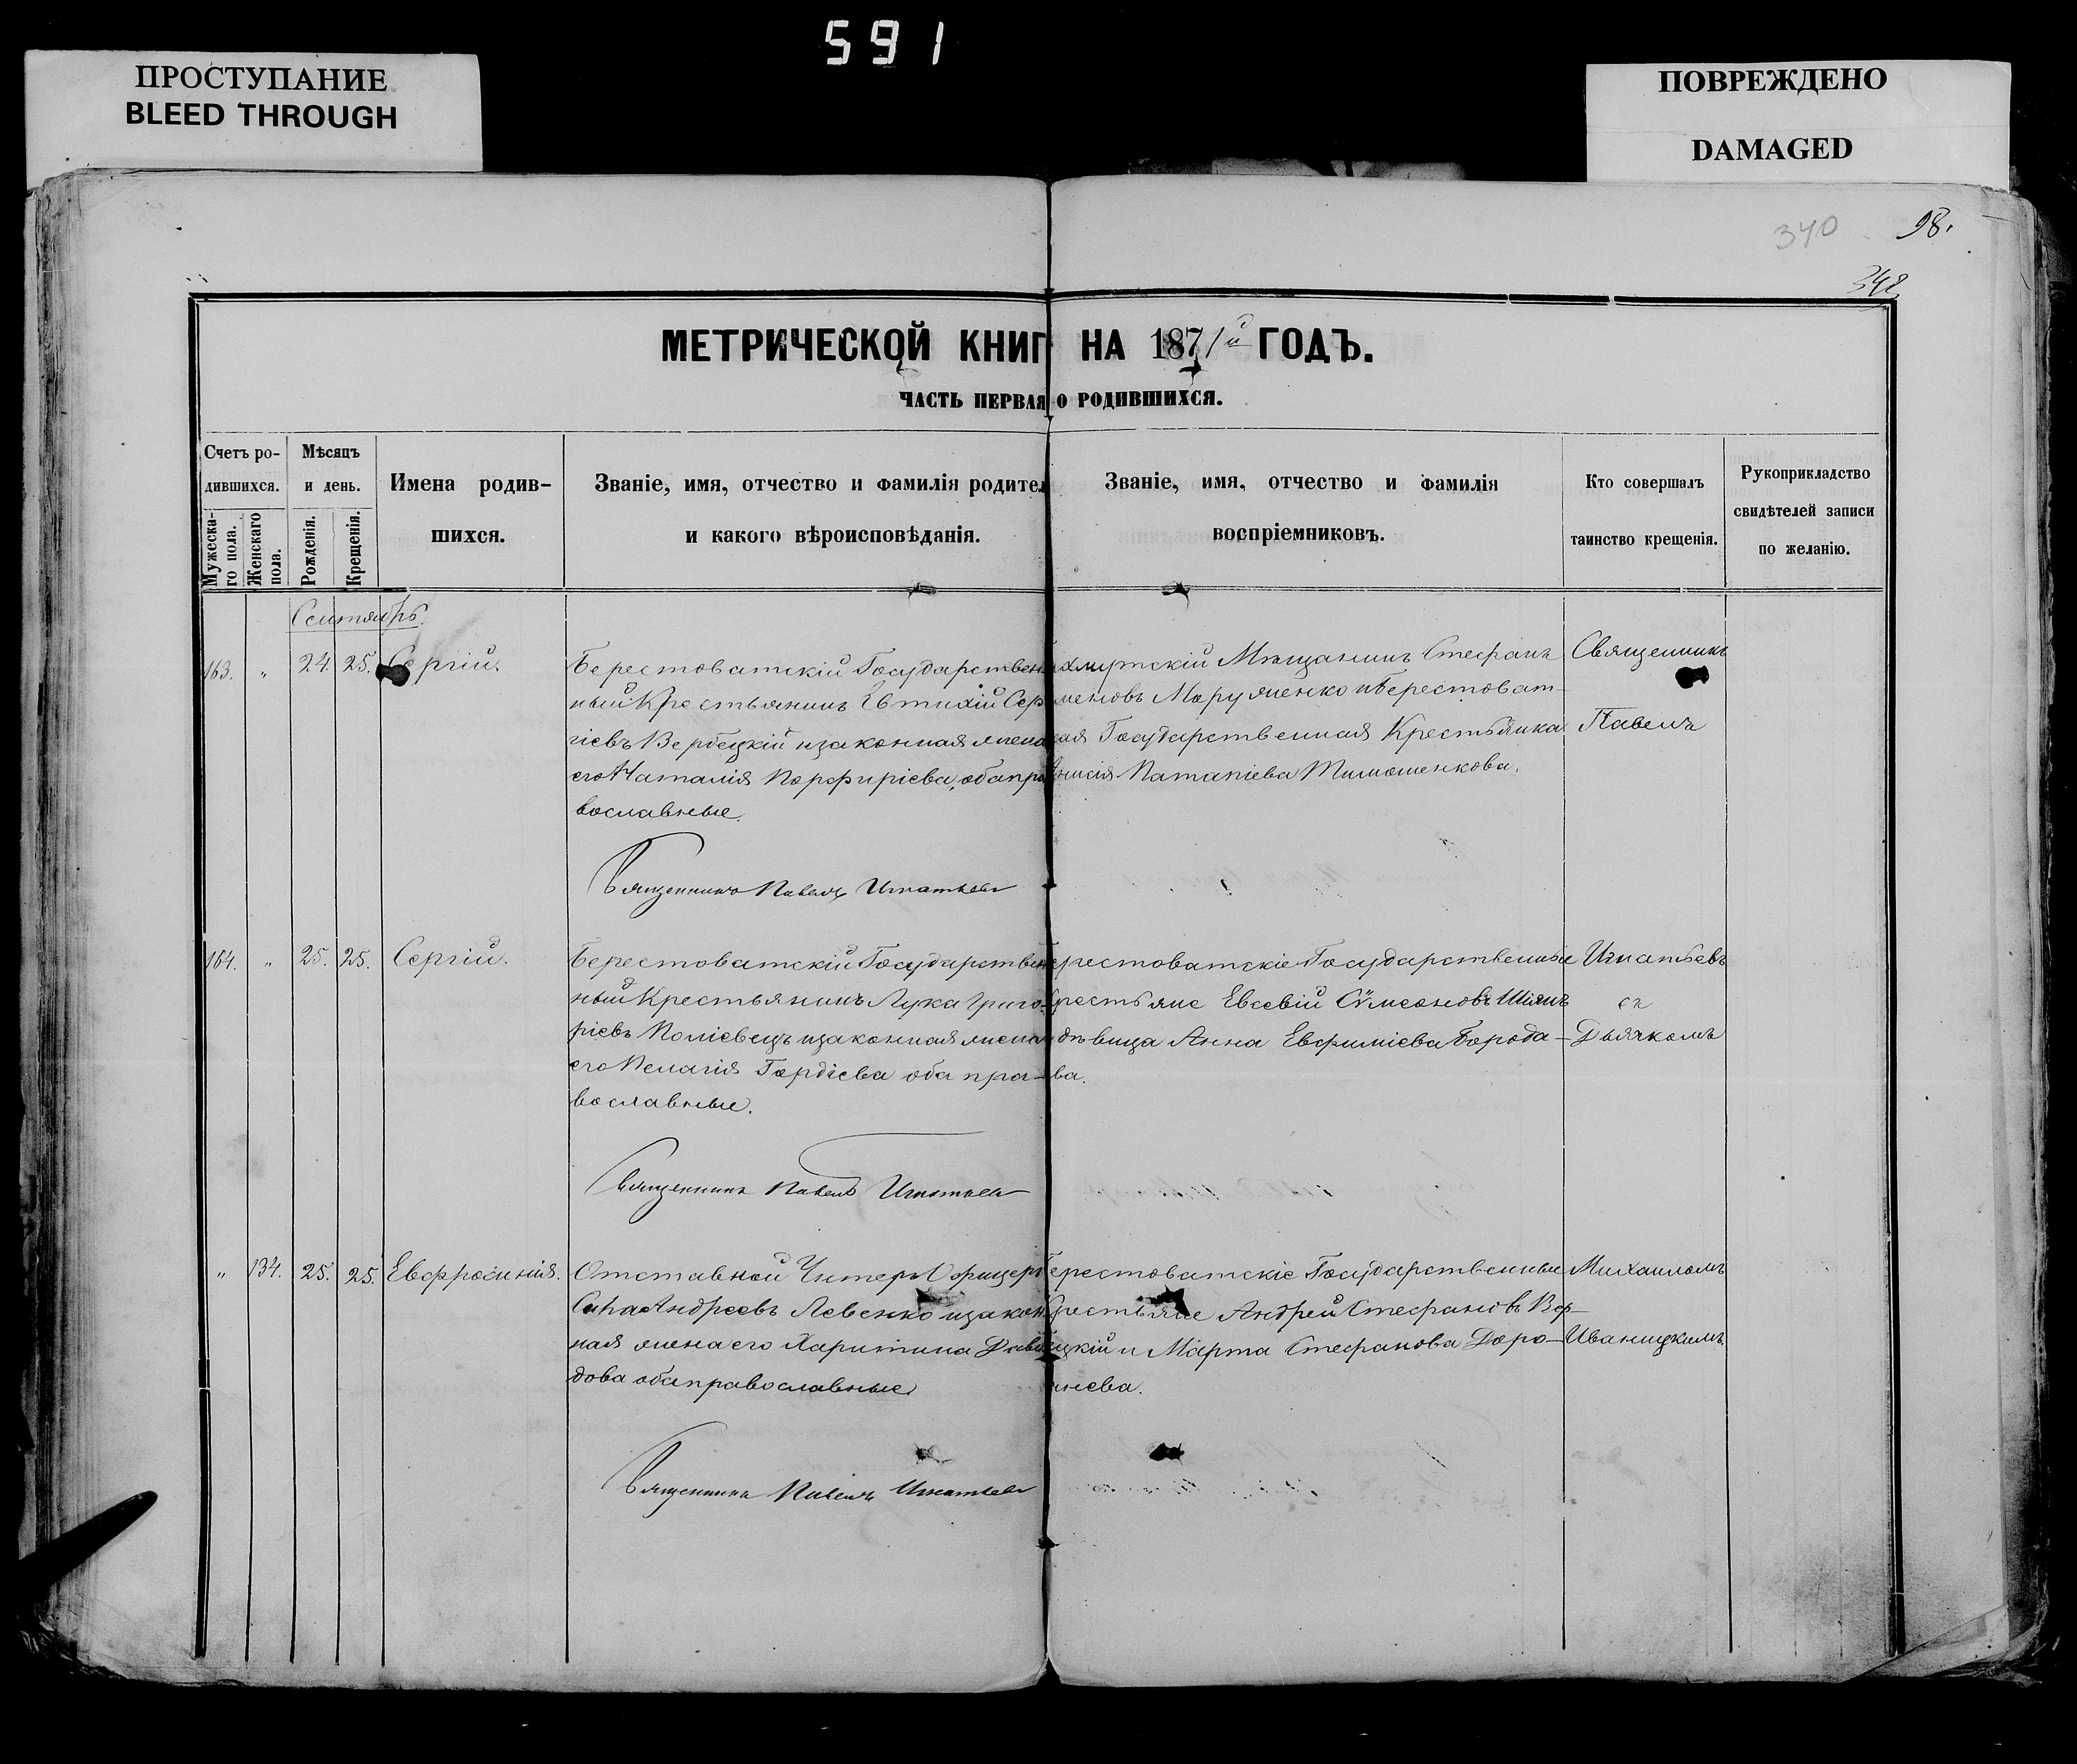 591
ПРОСТУПАНИЕ
BLEED THROUGH
ПОВРЕЖДЕНО
DAMAGED
340
98.
342
МЕТРИЧЕСКОЙ КНИГ НА 1871й ГОДЪ.
ЧАСТЬ ПЕРВАЯ О РОДИВШИХСЯ.
Счетъ ро-
дившихся.
Мужеска-
го пола.
Женскаго
пола.
Мѣсяцъ
и день.
Рожденія.
Крещенія.
Имена родив-
шихся.
Званіе, имя, отчество и фамилія родител
и какого вѣроисповѣданія.
Званіе, имя, отчество и фамилія
воспріемниковъ.
Кто совершалъ
таинство крещенія.
Рукоприкладство
свидѣтелей записи
по желанію.
Сентябрь.
163. " 24. 25. Сергій.
Берестоватскій Государствен
ный Крестьянинъ Евтихій Сер
гіевъ Вербецкій и законная жена
его Наталія Порфиріева, оба пра
вославные.
Священникъ Павелъ Игнатьев
хмутскій Мѣщанинъ Стефанъ
меновъ Марущенко и Берестоват-
кая Государственная Крестьянка
нисія Патапіева Тимошенкова.
Священникъ
Павелъ
164. " 25. 25. Сергій.
Берестоватскій Государствен
ный Крестьянинъ Лука Григо-
ріевъ Поліевецъ и законная жена
его Пелагія Гордіева оба пра-
вославные.
Священникъ Павелъ Игнатьев
ерестоватскіе Государственные
рестьяне Евсевій Сѵмеоновъ Шіянъ
дѣвица Анна Евфиміева Борода-
ва.
Игнатьевъ
съ
Дьячкомъ
" 134. 25. 25. Евфросинія.
Отставной Унтеръ Офицеръ
Сава Андреевъ Левенко и закон
ная жена его Харитина Давы
дова оба православные
Священникъ Павелъ Игнатьев
ерестоватскіе Государственные
рестьяне Андрей Стефановъ Вер-
ецкій и Марта Стефанова Доро-
нева.
Михаиломъ
Иваницкимъ.